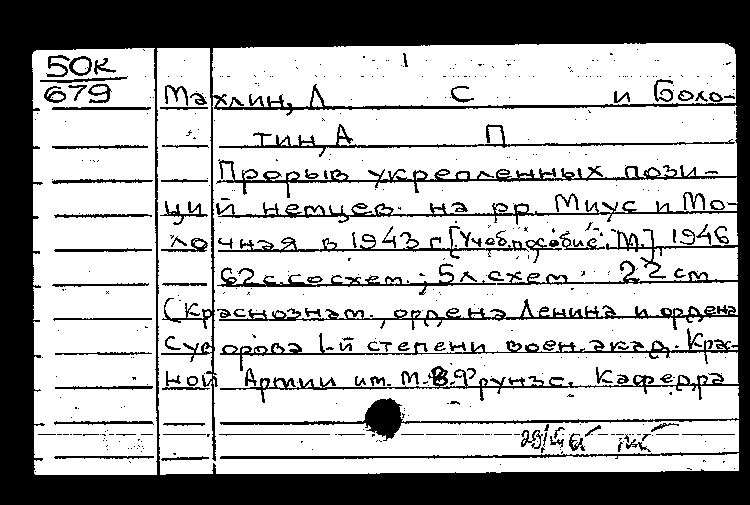 50к
679
1
Махлин, Л С и Боло-
тин, А П
Прорыв укрепленных пози-
ций немцев на рр. Миус и Мо-
лочная в 1943 г [Учеб. пособие. М.], 1946
62 с. со схем.; 5 л. схем. 22 cm
(Краснознам., ордена Ленина и ордена
Суворова 1-й степени воен. акад. Крас-
ной Армии им. М.В. Фрунзе. Кафедра